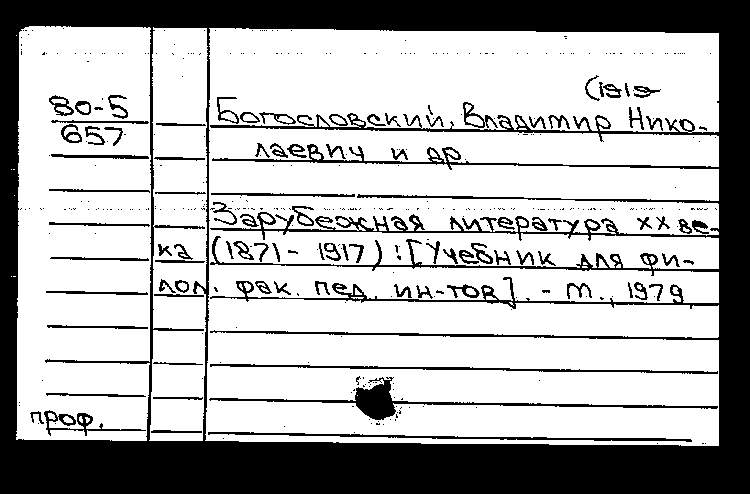 (1919-
80-5
657
Богословский, Владимир Нико-
лаевич и др.
Зарубежная литература XX ве-
ка (1871-1917) : [Учебник для фи-
лол. фак. пед. ин-тов]. - М., 1979.
проф.